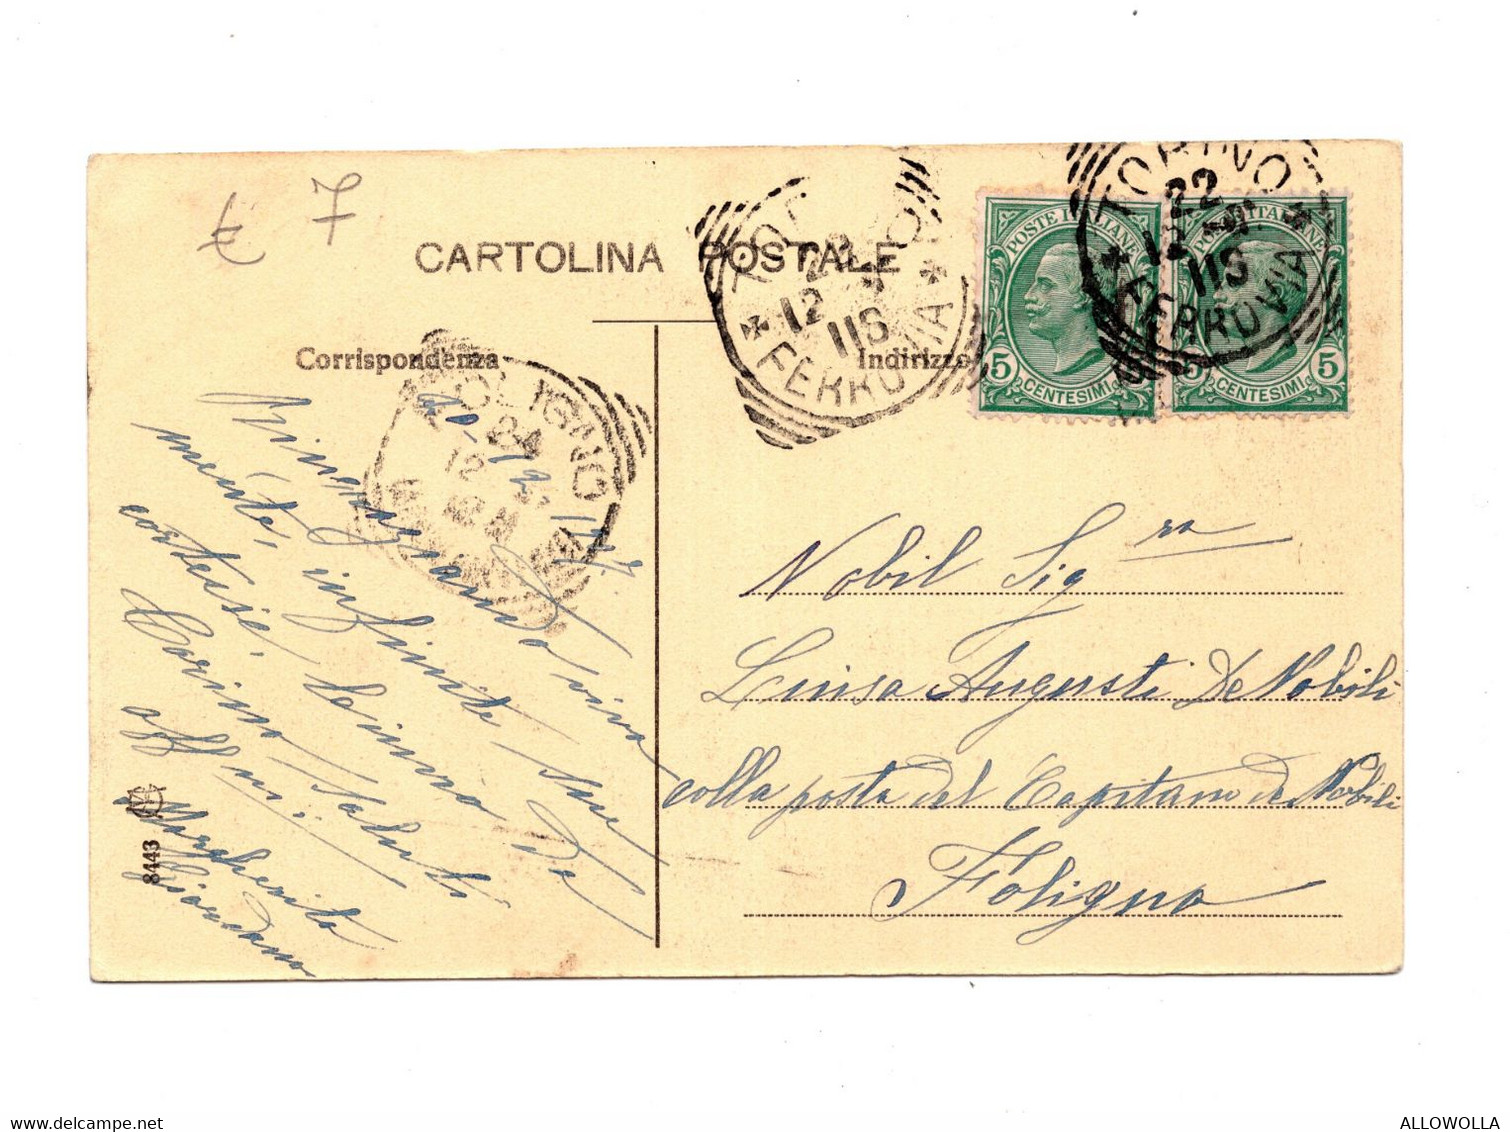 € 7
CARTOLINA POSTALE
Corrispondenza
Indirizzo
TORINO
22
12
FERROVIA
TORINO
22
12
FERROVIA
POSTE ITALIANE
5
CENTESIMI
POSTE ITALIANE
5
CENTESIMI
FOLIGNO
24
12
Ringraziando viva
mente, infinite sue
cortesie,
Torino saluti
aff.mi
Margherita
Giordano
Nobil Sig.ra
Luisa Augusti De Nobili
colla posta del Capitano De Nobili
Foligno
8443
ALLOWOLLA